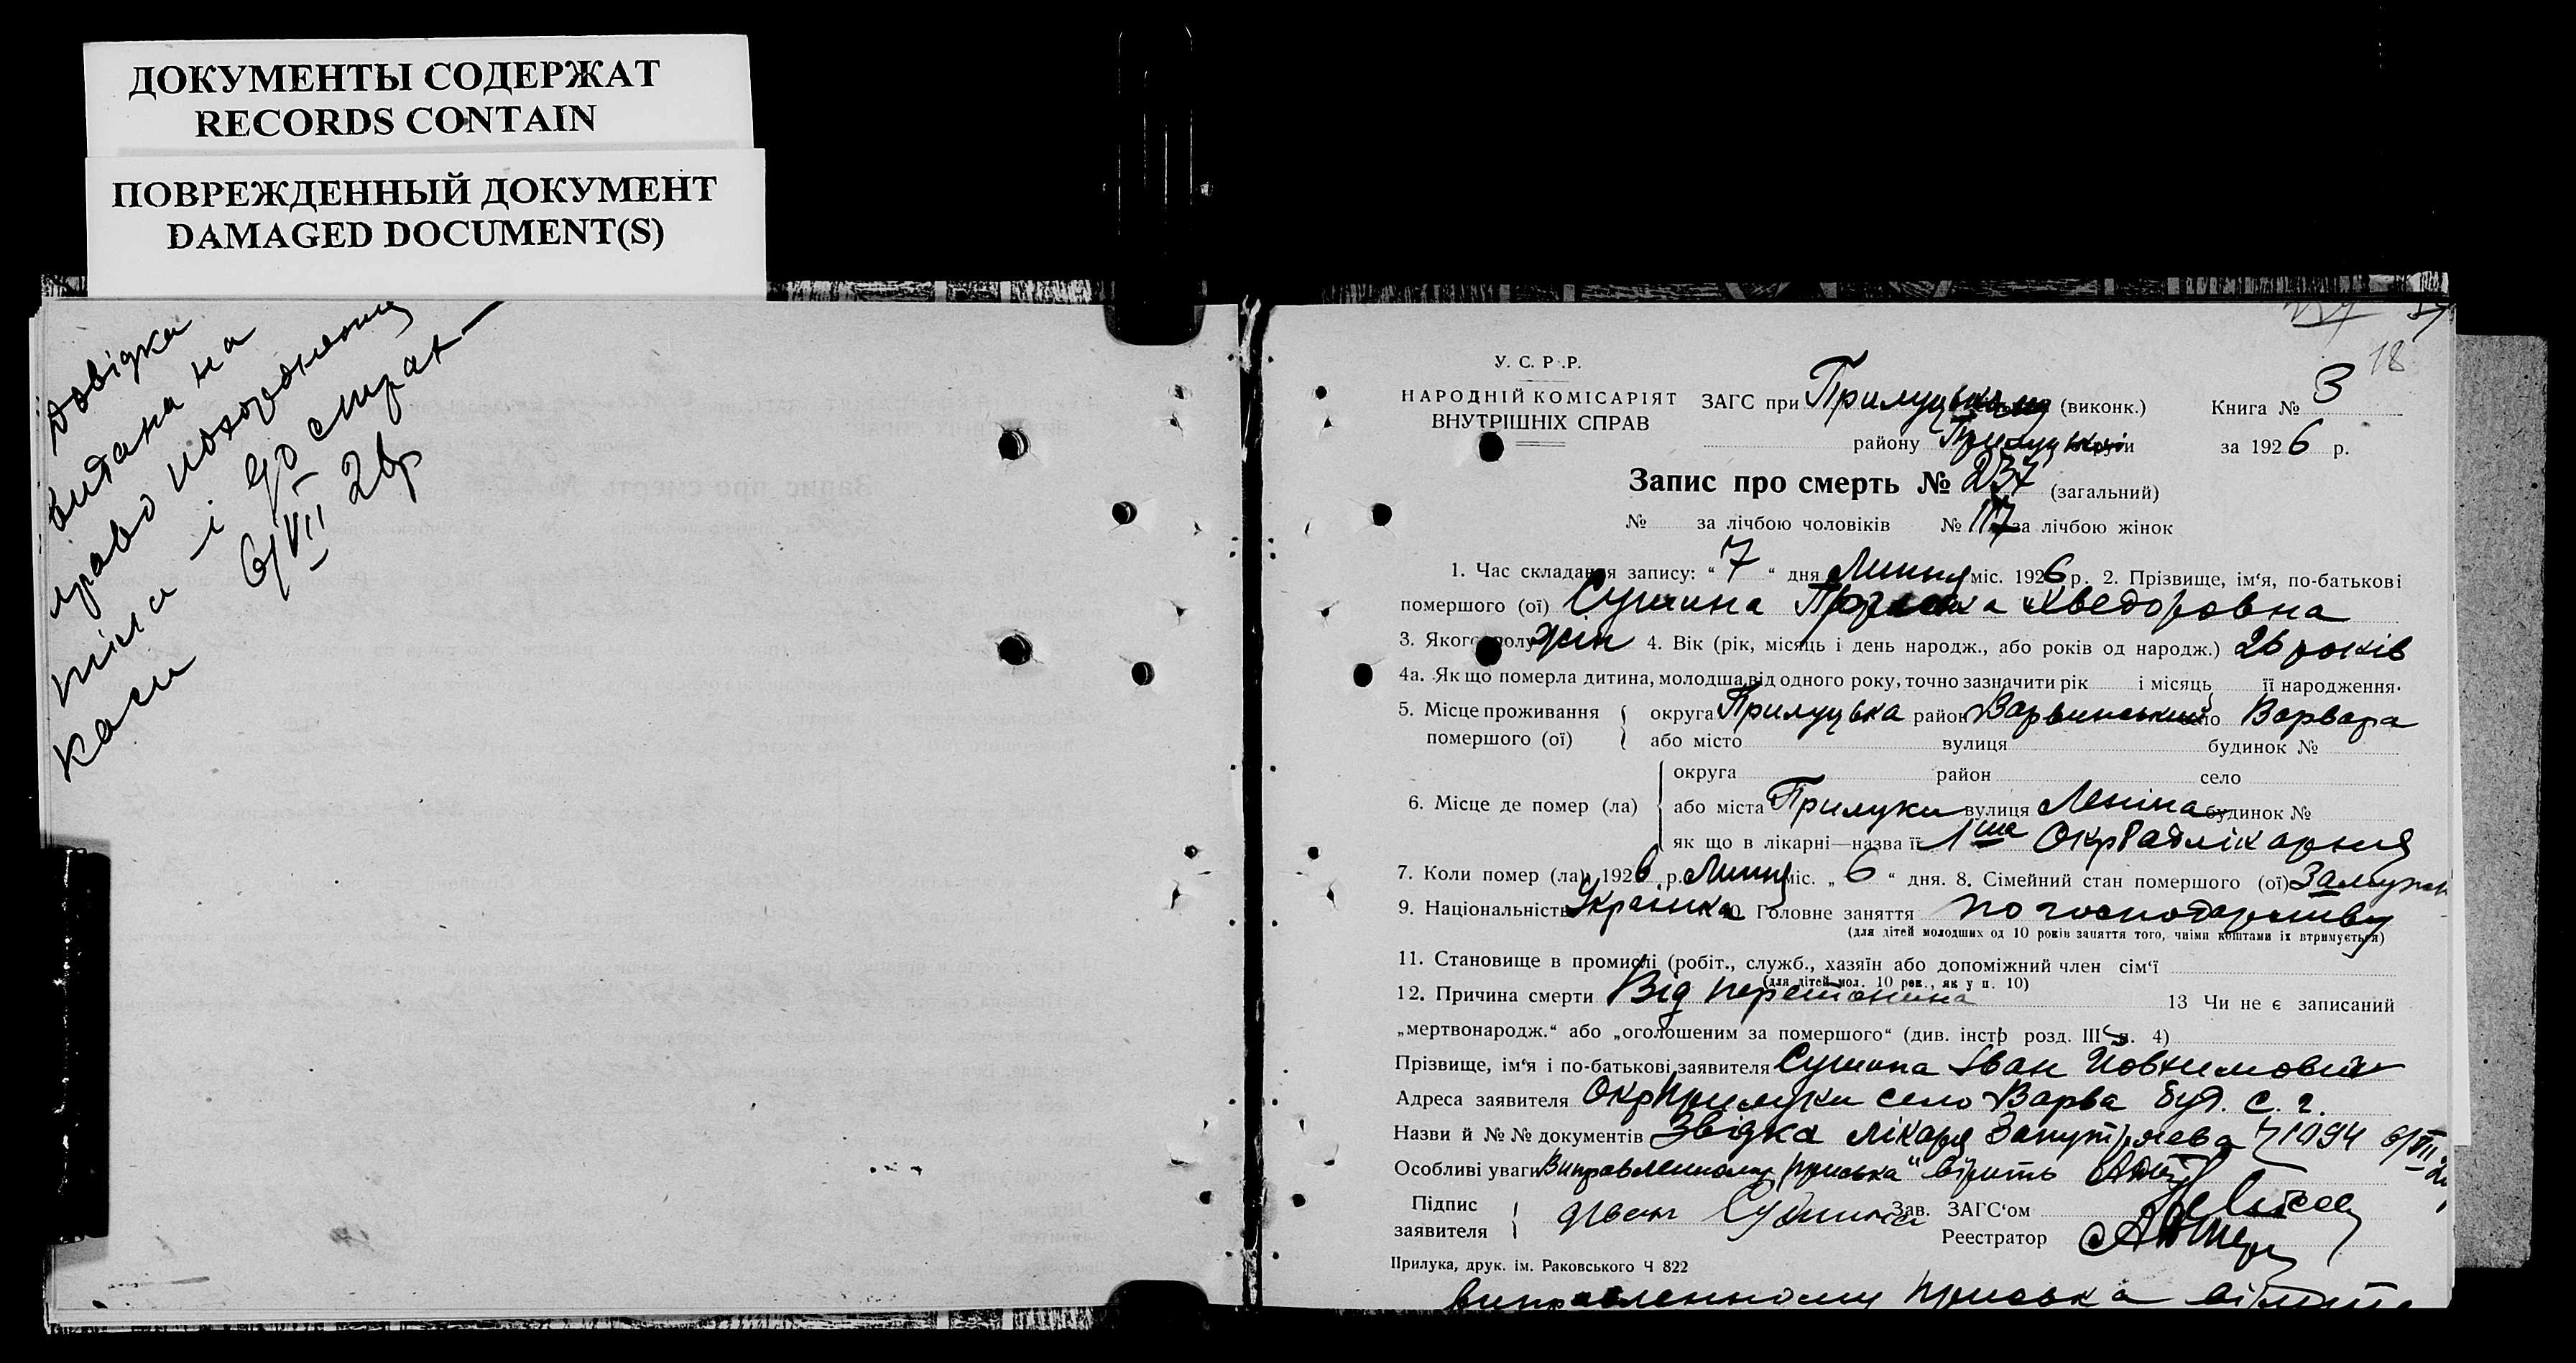 ДОКУМЕНТЫ СОДЕРЖАТ
RECORDS CONTAIN
ПОВРЕЖДЕННЫЙ ДОКУМЕНТ
DAMAGED DOCUMENT(S)
Довідка
видана на
право похорону
тіла і до страх
каси 6/VII 26р
18
У. С. Р. Р.
НАРОДНІЙ КОМІСАРІЯТ
ВНУТРІШНІХ СПРАВ
ЗАГС при (виконк.) Книга № 3
району Прилуцької округи за 1926 р.
Запис про смерть № 237 (загальний)
№ за лічбою чоловіків № 117 за лічбою жінок
1. Час складання запису: “ 7 “ дня Липня міс. 1926 р. 2. Прізвище, ім‘я, по-батькові
помершого (ої) Сушина Хведоровна
3. Якого полу жін 4. Вік (рік, місяць і день народж., або років од народж.) 26 років
4а. Як що померла дитина, молодша від одного року, точно зазначити рік і місяць її народження.
5. Місце проживання помершого (ої) { округа Прилуцька район Варвинський село Варвара
або місто вулиця будинок №
6. Місце де помер (ла) { округа район село
або міста Прилуки вулиця Леніна будинок №
як що в лікарні—назва її 1ша ОкрРадлікарня
7. Коли помер (ла) 1926 р. Липня міс. „ 6 “ дня. 8. Сімейний стан помершого (ої) Замужн
9. Національність Українка 10. Головне заняття по господарству
(для дітей молодших од 10 років заняття того, чиїми коштами їх втримується)
11. Становище в промислі (робіт., служб., хазяїн або допоміжний член сім‘ї
(для дітей мол. 10 рок., як у п. 10)
12. Причина смерти Від перетоніта 13 Чи не є записаний
„мертвонародж.“ або „оголошеним за помершого“ (див. інстр розд. III п. 4)
Прізвище, ім‘я і по-батькові заявителя Сушина Іван Йовхимович
Адреса заявителя Окр Прилуки село Варва буд. с. г.
Назви й №№ документів Звідка лікаря 1094 6/VII 2
Особливі уваги Виправленному „Приська“ вірить
Підпис заявителя { Зав. ЗАГС‘ом
Реестратор
Прилука, друк. ім. Раковського Ч 822
Виправленному Приська вірить